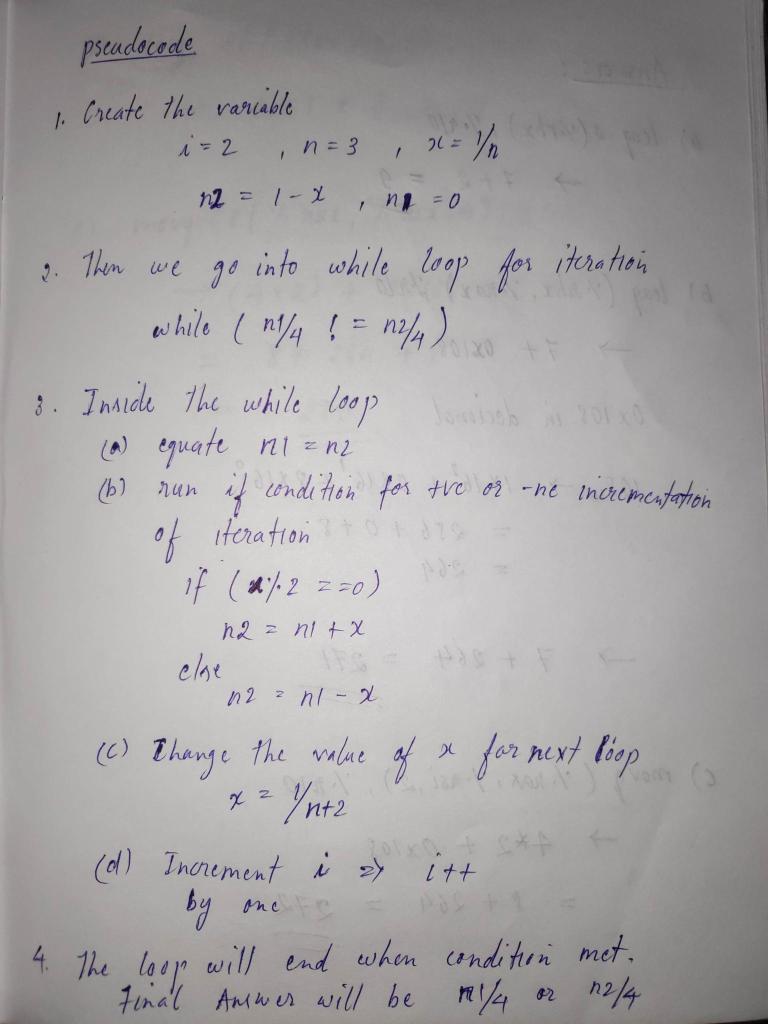 pseudocode
1. Create the variable
i = 2 , n = 3 , x = 1/n
n2 = 1 - x , n1 = 0
2. Then we go into while loop for iteration
while ( n1/4 ! = n2/4 )
3. Inside the while loop
(a) equate n1 = n2
(b) run if condition for +ve or -ne incrementation
of iteration
if ( % 2 == 0 )
n2 = n1 + x
else
n2 = n1 - x
(c) Change the value of x for next loop
x = 1/n+2
(d) Increment i => i++
by one
4. The loop will end when condition met.
Final Answer will be n1/4 or n2/4